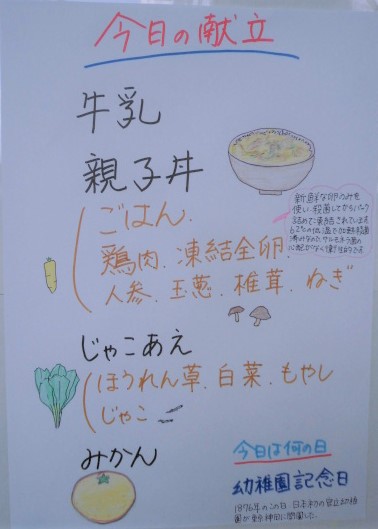 今日の献立
牛乳
親子丼
ごはん、
鶏肉、凍結全卵、
人参、玉葱、椎茸、ねぎ
新鮮な卵のみを
使い、殺菌してからパック
詰めで凍結されています。
じゃこあえ
ほうれん草、白菜、もやし
じゃこ
みかん
今日は何の日
幼稚園記念日
1876年のこの日、日本初の官立幼稚
園が東京神田に開園した。